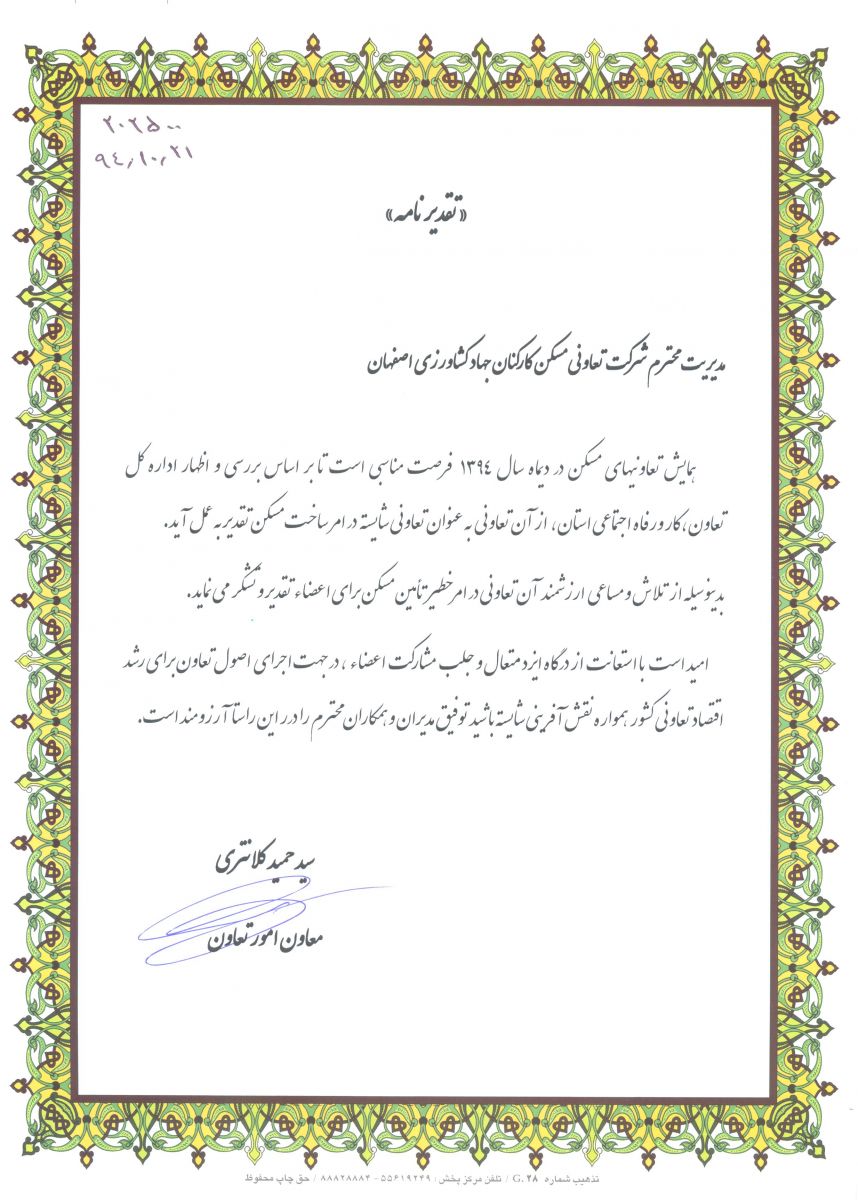 ۲۰۲۵۰۰
۹٤/۱۰/۲۱
«تقدیر نامه»
مدیریت محترم شرکت تعاونی مسکن کارکنان جهاد کشاورزی اصفهان
همایش تعاونیهای مسکن در دیماه سال ۱۳۹٤ فرصت مناسبی است تا بر اساس بررسی و اظهار اداره کل
تعاون، کار و رفاه اجتماعی استان، از آن تعاونی به عنوان تعاونی شایسته در امر ساخت مسکن تقدیر به عمل آید.
بدینوسیله از تلاش و مساعی ارزشمند آن تعاونی در امر خطیر تأمین مسکن برای اعضاء تقدیر و تشکر می نماید.
امید است با استعانت از درگاه ایزد متعال و جلب مشارکت اعضاء، در جهت اجرای اصول تعاون برای رشد
اقتصاد تعاونی کشور همواره نقش آفرینی شایسته باشید توفیق مدیران و همکاران محترم را درر این راستا آرزومند است.
سید حمید کلانتری
معاون امور تعاون
تذهیب شماره G.۲۸ / تلفن مرکز پخش: ۵۵۶۱۹۲۴۹-۸۸۸۲۸۸۸۴ / حق چاپ محفوظ